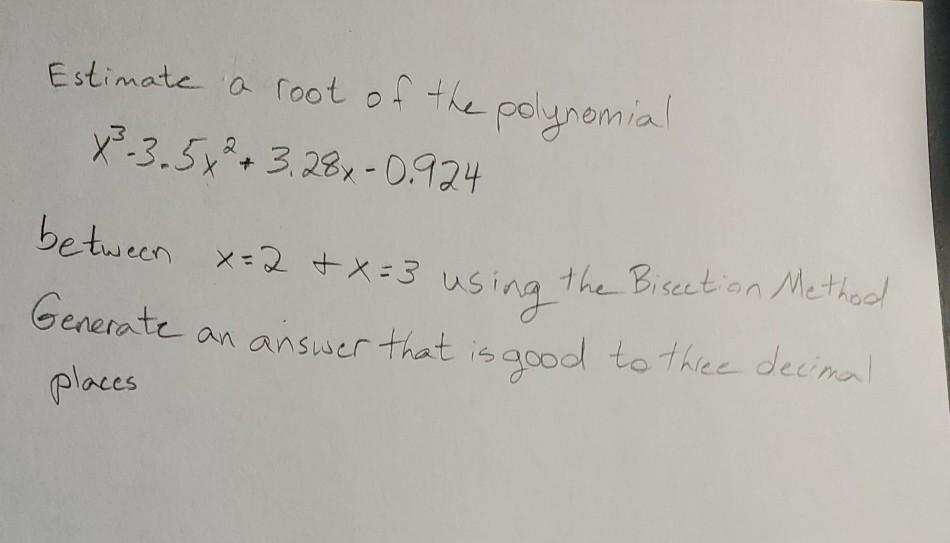 Estimate a root of the polynomial
x³-3.5x²+3.28x-0.924
between x=2 + x=3 using the Bisection Method
Generate an answer that is good to three decimal
places